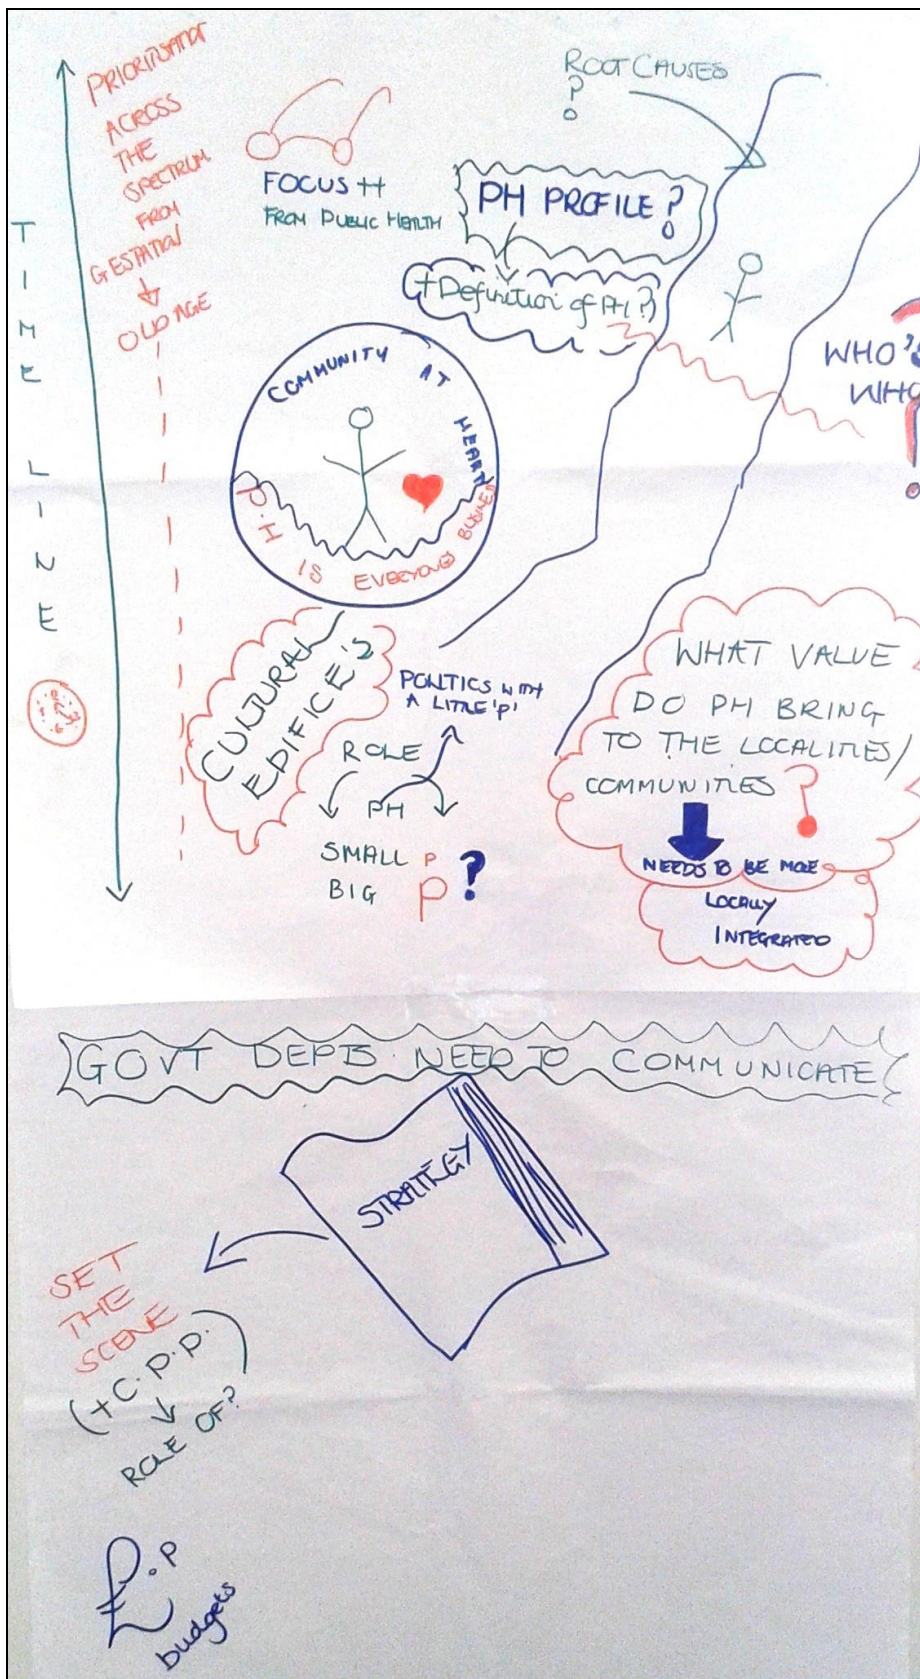 PRIORITISATION
ACROSS
THE
SPECTRUM
FROM
GESTATION
OLD AGE
TIME LINE
ROOT CAUSES
?
FOCUS ++
FROM PUBLIC HEALTH
PH PROFILE?
(+ Definition of PH?)
WHO'S
WHO
COMMUNITY AT HEART
P.H IS EVERYONES BUSINESS
CULTURAL
EDIFICE'S
POLITICS WITH
A LITTLE 'P'
ROLE
PH
SMALL P
BIG P ?
WHAT VALUE
DO PH BRING
TO THE LOCALITIES/
COMMUNITIES ?
NEEDS TO BE MORE
LOCALLY
INTEGRATED
GOVT DEPTS NEED TO COMMUNICATE
STRATEGY
SET
THE
SCENE
(+ C.P.P.)
ROLE OF?
£.P
budgets